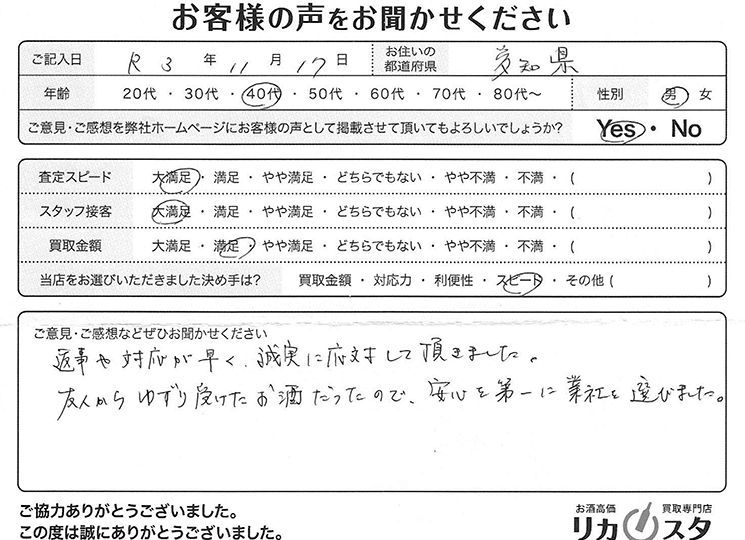 お客様の声をお聞かせください
ご記入日 R 3 年 11 月 17 日 お住いの都道府県 愛知県
年齢 20代 ・ 30代 ・ 40代 ・ 50代 ・ 60代 ・ 70代 ・ 80代〜 性別 男 ・ 女
ご意見・ご感想を弊社ホームページにお客様の声として掲載させて頂いてもよろしいでしょうか? Yes ・ No
査定スピード 大満足 ・ 満足 ・ やや満足 ・ どちらでもない ・ やや不満 ・ 不満 ・ ( )
スタッフ接客 大満足 ・ 満足 ・ やや満足 ・ どちらでもない ・ やや不満 ・ 不満 ・ ( )
買取金額 大満足 ・ 満足 ・ やや満足 ・ どちらでもない ・ やや不満 ・ 不満 ・ ( )
当店をお選びいただきました決め手は? 買取金額 ・ 対応力 ・ 利便性 ・ スピード ・ その他 ( )
ご意見・ご感想などぜひお聞かせください
返事や対応が早く、誠実に応対して頂きました。
友人からゆずり受けたお酒だったので、安心を第一に業社を選びました。
ご協力ありがとうございました。
この度は誠にありがとうございました。
お酒高価 買取専門店
リカスタ